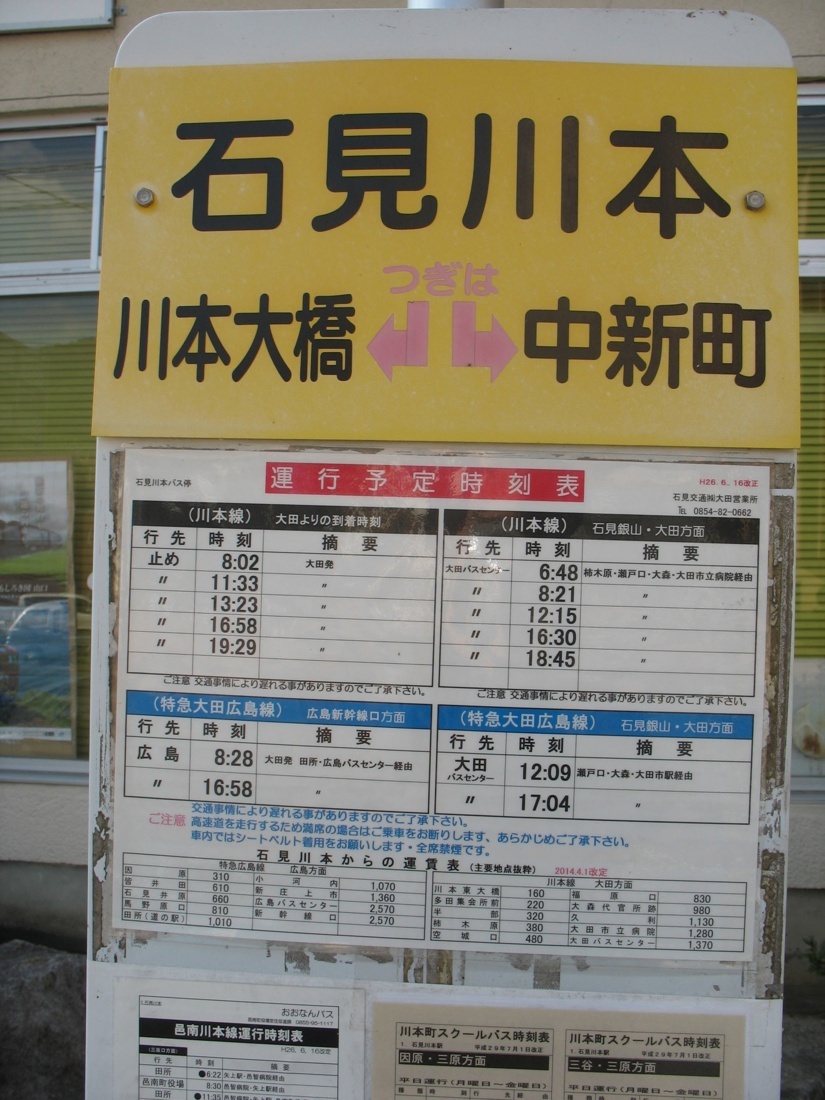 石見川本
つぎは
川本大橋 中新町
石見川本バス停 運行予定時刻表 H26.6.16改正
石見交通㈱大田営業所
℡ 0854-82-0662
(川本線) 大田よりの到着時刻
行先 時刻 摘要
止め 8:02 大田発
〃 11:33 〃
〃 13:23 〃
〃 16:58 〃
〃 19:29 〃
ご注意 交通事情により遅れる事がありますのでご了承下さい。
(川本線) 石見銀山・大田方面
行先 時刻 摘要
大田バスセンター 6:48 柿木原・瀬戸口・大森・大田市立病院経由
〃 8:21 〃
〃 12:15 〃
〃 16:30 〃
〃 18:45 〃
ご注意 交通事情により遅れる事がありますのでご了承下さい。
(特急大田広島線) 広島新幹線口方面
行先 時刻 摘要
広島 8:28 大田発 田所・広島バスセンター経由
〃 16:58 〃
(特急大田広島線) 石見銀山・大田方面
行先 時刻 摘要
大田バスセンター 12:09 瀬戸口・大森・大田市駅経由
〃 17:04 〃
ご注意 交通事情により遅れる事がありますのでご了承下さい。
高速道を走行するため満席の場合はご乗車をお断りします、あらかじめご了承下さい。
車内ではシートベルト着用をお願いします・全席禁煙です。
石見川本からの運賃表(主要地点抜粋) 2014.4.1改定
特急広島線 広島方面
因原 310 小河内 1,070
皆井田 610 新庄上市 1,360
石見井原 660 広島バスセンター 2,570
馬野原口 810 新幹線口 2,570
田所(道の駅) 1,010
川本線 大田方面
川本東大橋 160 福原口 830
多田集会所前 220 大森代官所跡 980
半部 320 久利 1,130
柿木原 380 大田市立病院 1,280
空城口 480 大田バスセンター 1,370
おおなんバス
邑南川本線運行時刻表
H26.6.16改正
行先 時刻 摘要
田所 ●6:22 矢上駅・邑智病院経由
邑南町役場 8:30 邑智病院・矢上駅経由
田所 ●11:35
川本町スクールバス時刻表
1.石見川本駅 平成29年7月1日改定
因原・三原方面
平日運行(月曜日~金曜日)
川本町スクールバス時刻表
1.石見川本駅 平成29年7月1日改定
三谷・三原方面
平日運行(月曜日~金曜日)